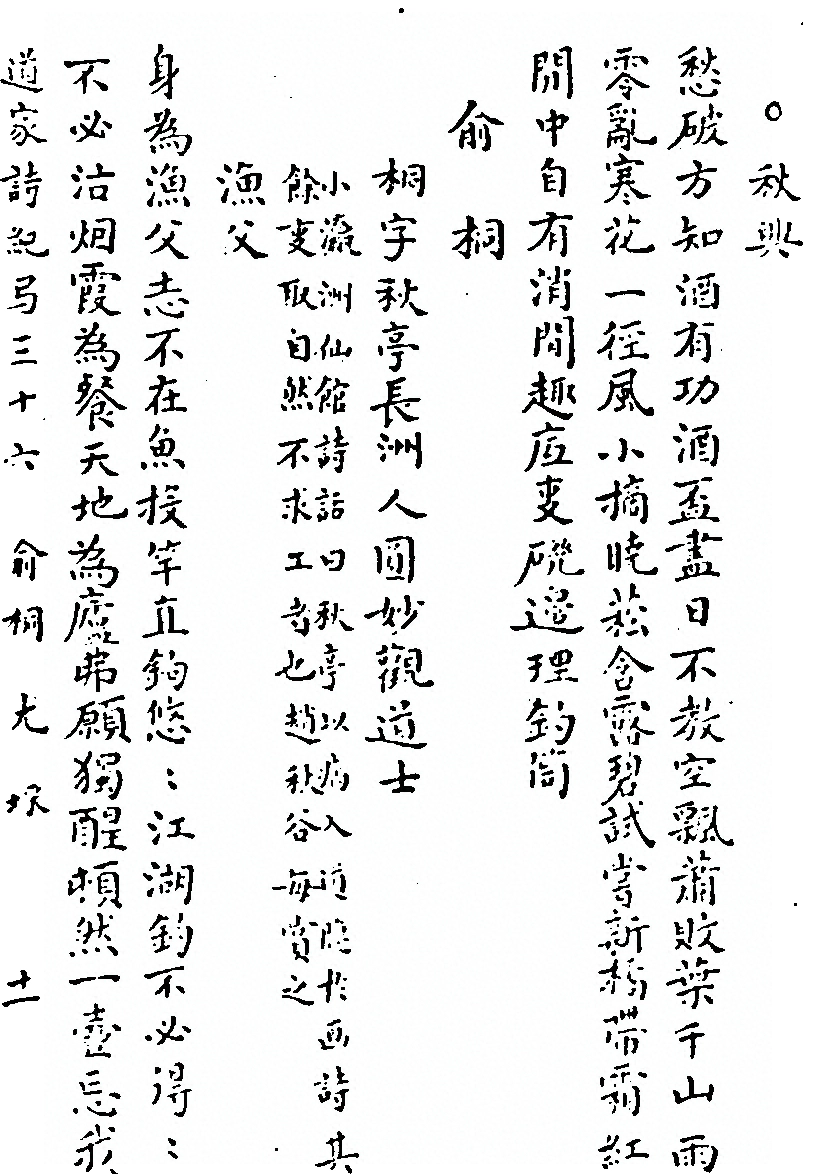 ○秋興
愁破方知酒有功酒盃盡日不教空飄蕭敗葉千山雨
零亂寒花一徑風小摘晚菘含露碧試嘗新橘帶霜紅
閒中自有消閒趣店叓磯邊理釣筒
俞桐
桐字秋亭長洲人圓妙觀道士
小瀛洲仙館詩話曰秋亭以病入道隱於画詩其
餘叓取自然不求工者也趙秋谷每賞之
漁父
身為漁父志不在魚投竿直鉤悠:江湖釣不必得:
不必沽烟霞為餐天地為廬弗願獨醒頹然一壺忘我
道家詩紀弓三十六 俞桐 尤埰 十一